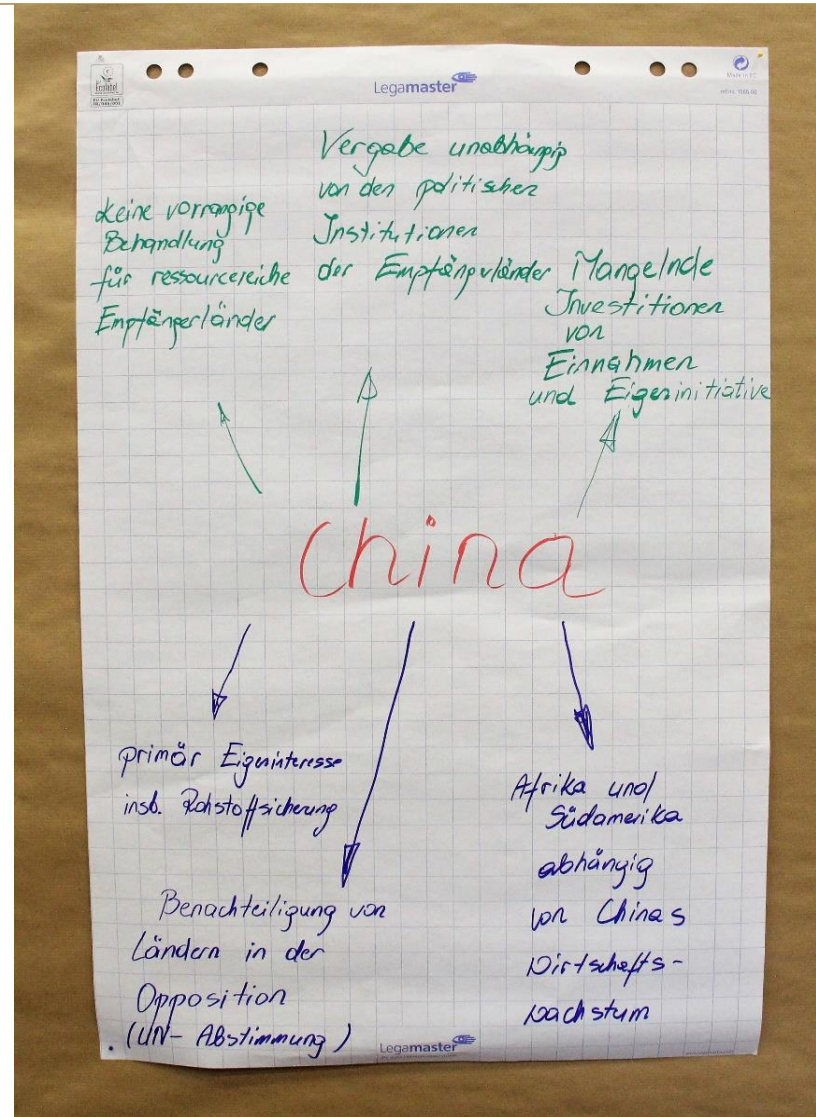 Legamaster
Made in EC
Vergabe unabhängig
von den politischen
Institutionen
der Empfängerländer
keine vorrangige
Behandlung
für ressourcereiche
Empfängerländer
Mangelnde
Investitionen
von
Einnahmen
und Eigeninitiative
China
primär Eigeninteresse
insb. Rohstoffsicherung
Benachteiligung von
Ländern in der
Opposition
(UN-Abstimmung)
Afrika und
Südamerika
abhängig
von Chinas
Wirtschafts-
wachstum
Legamaster